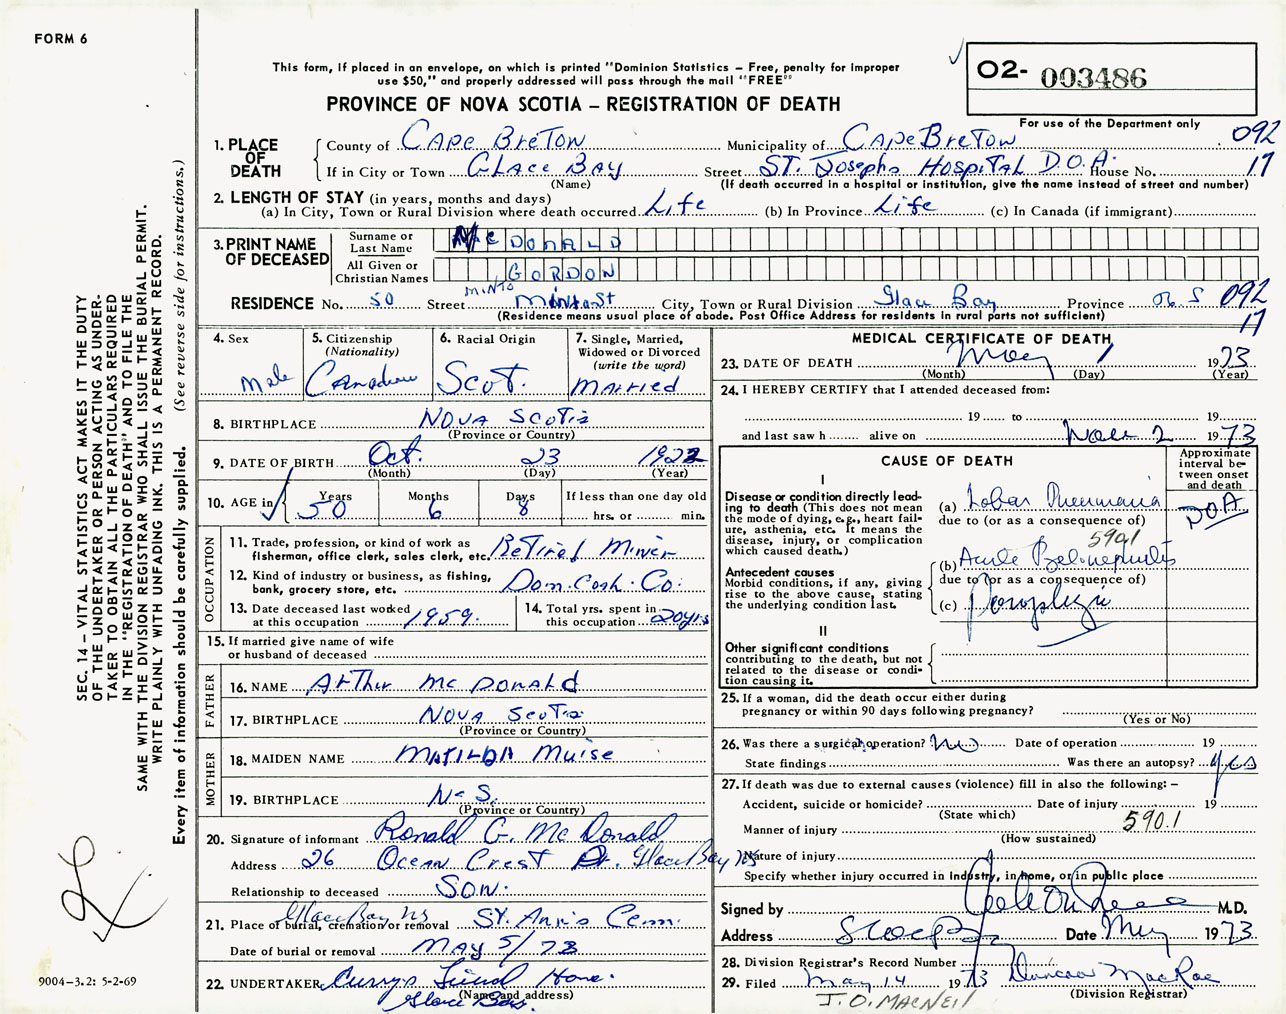 FORM 6
This form, if placed in an envelope, on which is printed "Dominion Statistics – Free, penalty for improper
use $50," and properly addressed will pass through the mail "FREE"
PROVINCE OF NOVA SCOTIA – REGISTRATION OF DEATH
O2- 003486
For use of the Department only
092
17
1. PLACE OF DEATH
County of CAPE BRETON Municipality of CAPE BRETON
If in City or Town GLACE BAY Street ST. Josephs HOSPITAL D.O.A. House No.
(Name) (If death occurred in a hospital or institution, give the name instead of street and number)
2. LENGTH OF STAY (in years, months and days)
(a) In City, Town or Rural Division where death occurred Life (b) In Province Life (c) In Canada (if immigrant)
3. PRINT NAME OF DECEASED
Surname or Last Name McDONALD
All Given or Christian Names GORDON
RESIDENCE No. 50 Street Minto st City, Town or Rural Division Glace Bay Province of S 092
MINTO
17
(Residence means usual place of abode. Post Office Address for residents in rural parts not sufficient)
4. Sex Male
5. Citizenship (Nationality) Canadian
6. Racial Origin Scot.
7. Single, Married, Widowed or Divorced (write the word) Married
8. BIRTHPLACE NOVA SCOTIA
(Province or Country)
9. DATE OF BIRTH Oct. 23 1922
(Month) (Day) (Year)
10. AGE in Years 50 Months 6 Days 8 If less than one day old
hrs. or min.
OCCUPATION
11. Trade, profession, or kind of work as fisherman, office clerk, sales clerk, etc. Retired Miner
12. Kind of industry or business, as fishing, bank, grocery store, etc. Dom. Coal Co.
13. Date deceased last worked at this occupation 1959.
14. Total yrs. spent in this occupation 20yrs
15. If married give name of wife
or husband of deceased
FATHER
16. NAME Arthur McDonald
17. BIRTHPLACE NOVA Scotia
(Province or Country)
MOTHER
18. MAIDEN NAME MATILDA Muise
19. BIRTHPLACE N.S.
(Province or Country)
20. Signature of informant Ronald G. McDonald
Address 26 Ocean Crest Dr. Glace Bay NS
Relationship to deceased SON.
Glace Bay NS
21. Place of burial, cremation or removal St. Ann's Cem.
Date of burial or removal MAY 5/73
22. UNDERTAKER Currys Funeral Home.
(Name and address)
Glace Bay.
MEDICAL CERTIFICATE OF DEATH
23. DATE OF DEATH May 1 1973
(Month) (Day) (Year)
24. I HEREBY CERTIFY that I attended deceased from:
19 to 19
and last saw h alive on 2 1973
CAUSE OF DEATH
Approximate interval between onset and death
I
Disease or condition directly leading to death (This does not mean the mode of dying, e.g., heart failure, asthenia, etc. It means the disease, injury, or complication which caused death.)
(a) Lobar Pneumonia DOA
due to (or as a consequence of)
590.1
Antecedent causes
Morbid conditions, if any, giving rise to the above cause, stating the underlying condition last.
(b) Acute Pyelonephritis
due to (or as a consequence of)
(c) Paraplegia
II
Other significant conditions
contributing to the death, but not related to the disease or condition causing it.
25. If a woman, did the death occur either during
pregnancy or within 90 days following pregnancy?
(Yes or No)
26. Was there a surgical operation? No Date of operation 19
State findings Was there an autopsy? Yes
27. If death was due to external causes (violence) fill in also the following: –
Accident, suicide or homicide? Date of injury 19
(State which)
Manner of injury 590.1
(How sustained)
Nature of injury
Specify whether injury occurred in industry, in home, or in public place
Signed by M.D.
Address Date May 1973
28. Division Registrar's Record Number
29. Filed May 14 1973 Duncan MacRae
(Division Registrar)
J. O. MACNEIL
SEC. 14 – VITAL STATISTICS ACT MAKES IT THE DUTY
OF THE UNDERTAKER OR PERSON ACTING AS UNDERTAKER
TO OBTAIN ALL THE PARTICULARS REQUIRED
IN THE "REGISTRATION OF DEATH" AND TO FILE THE
SAME WITH THE DIVISION REGISTRAR WHO SHALL ISSUE THE BURIAL PERMIT.
WRITE PLAINLY WITH UNFADING INK. THIS IS A PERMANENT RECORD.
Every item of information should be carefully supplied. (See reverse side for instructions.)
9004–3.2: 5-2-69